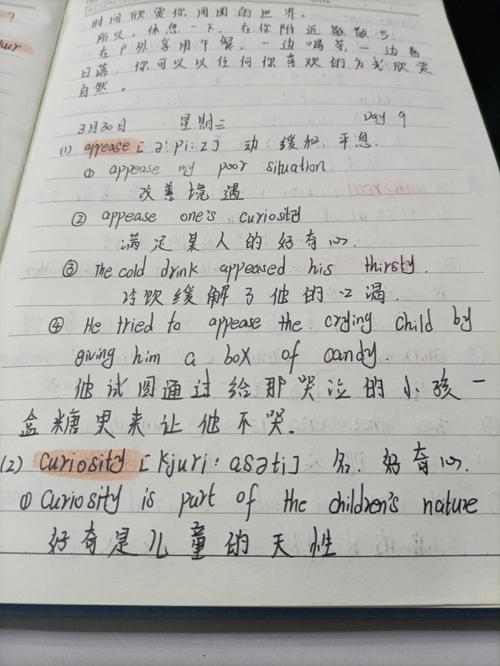 时间欣赏你周围的世界.
所以,休息一下,在你附近散散步
在户外享用午餐,一边喝茶,一边看
日落,你可以以任何你喜欢的方式欣赏
自然。
3月30日 星期三 Day 9
(1) appease [ə'pi:z] 动 缓和,平息.
① appease my poor situation
改善境遇
② appease one's curiosity
满足某人的好奇心.
③ The cold drink appeased his thirsty.
冷饮缓解了他的口渴.
④ He tried to appease the crying child by
giving him a box of candy.
他试图通过给那哭泣的小孩一
盒糖果来让他不哭.
(2) curiosity [kjuri·asəti] 名. 好奇心.
① curiosity is part of the children's nature
好奇是儿童的天性